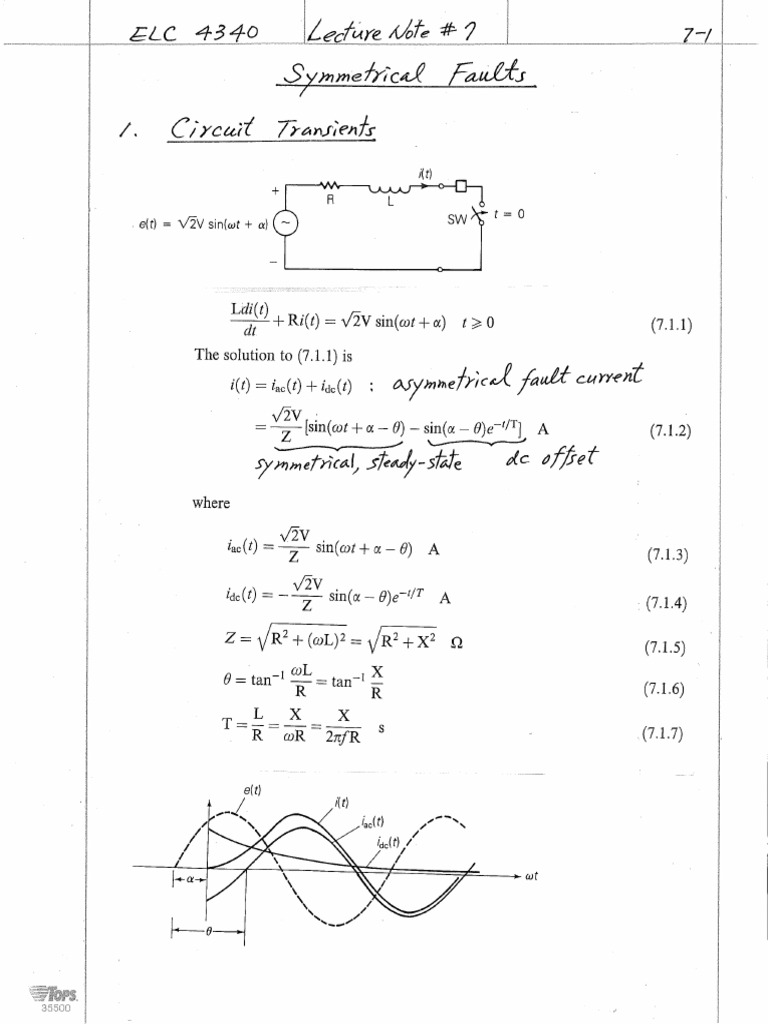 ELC 4340 Lecture Note # 7 7-1
Symmetrical Faults
1. Circuit Transients
i(t)
+
R L
SW t = 0
e(t) = √2V sin(ωt + α) ~
−
Ldi(t)/dt + Ri(t) = √2V sin(ωt + α) t ⩾ 0 (7.1.1)
The solution to (7.1.1) is
i(t) = iac(t) + idc(t) : asymmetrical fault current
= √2V/Z [sin(ωt + α − θ) − sin(α − θ)e^−t/T] A (7.1.2)
symmetrical, steady-state dc offset
where
iac(t) = √2V/Z sin(ωt + α − θ) A (7.1.3)
idc(t) = − √2V/Z sin(α − θ)e^−t/T A (7.1.4)
Z = √(R² + (ωL)²) = √(R² + X²) Ω (7.1.5)
θ = tan⁻¹ ωL/R = tan⁻¹ X/R (7.1.6)
T = L/R = X/ωR = X/2πfR s (7.1.7)
e(t)
i(t)
iac(t)
idc(t)
α
ωt
θ
TOPS
35500